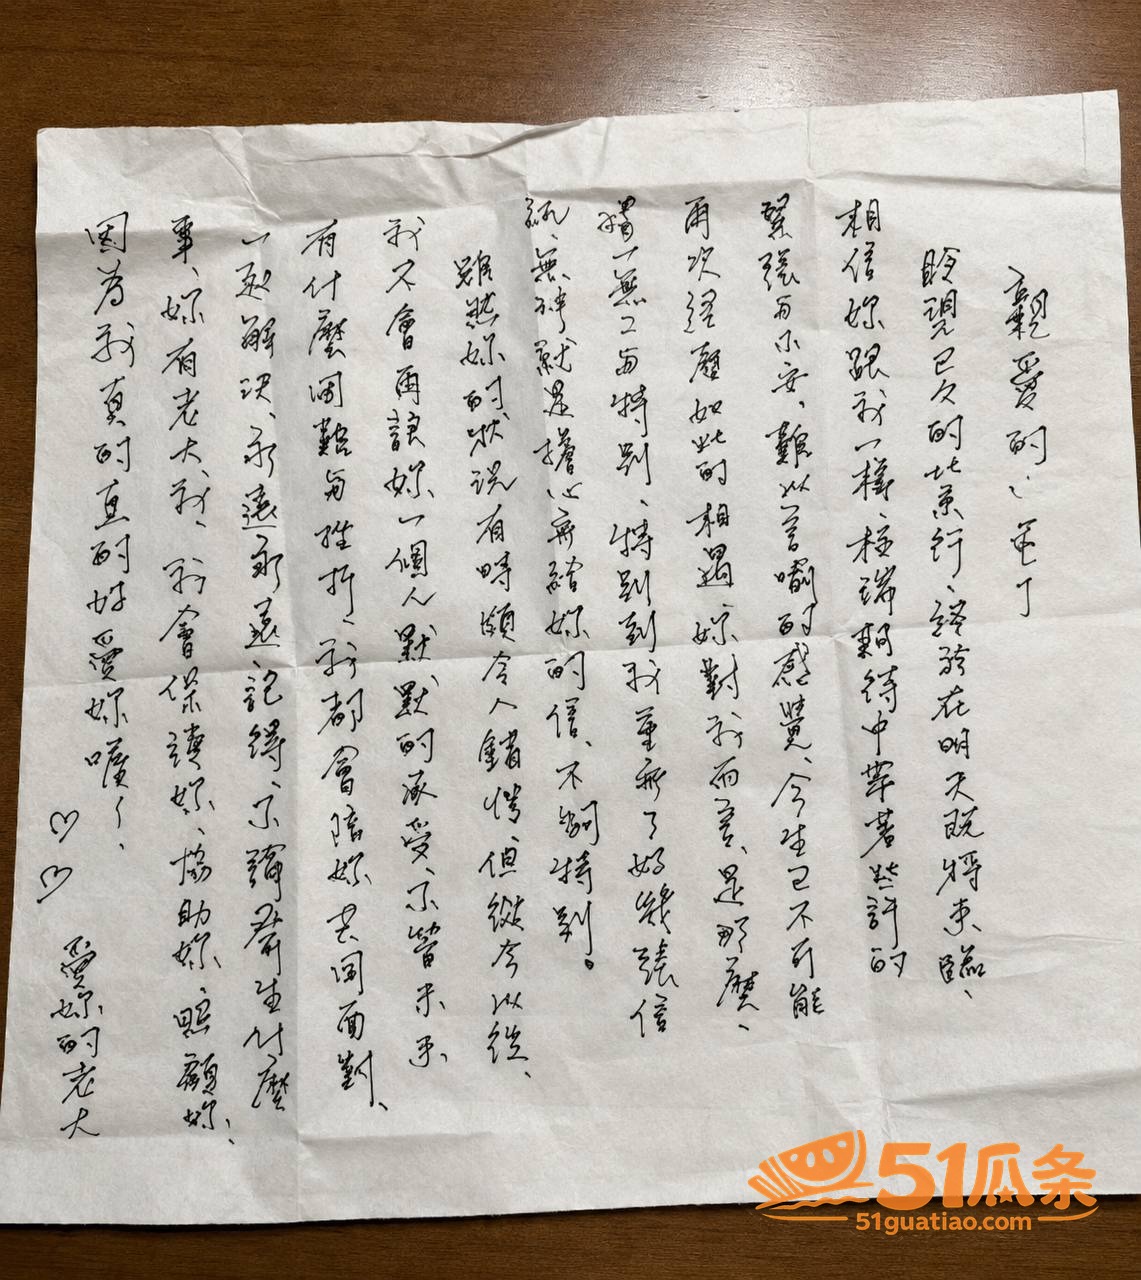 親愛的
盼望已久的北京行、終於在明天既將來臨、
相信妳跟我一樣、在期待中帶著些許的
緊張與不安、難以言喻的感覺、今生已不可能
再次經歷如此的相遇、妳對我而言、是那麼、
獨一無二與特別、特別到我重新了好幾張信
紙、無非就是擔心寄給妳的信、不夠特別。
雖然妳的狀況有時頗令人錯愕、但從今以後、
我不會再讓妳一個人默默的承受、不管未來
有什麼困難與挫折、我都會陪妳去面對、
一起解決、永遠永遠記得、不論發生什麼
事、妳有老大、我、我會保護妳、協助妳、照顧妳、
因為我真的真的好愛妳喔、
♡ ♡
愛妳的老大
51瓜条
51guatiao.com